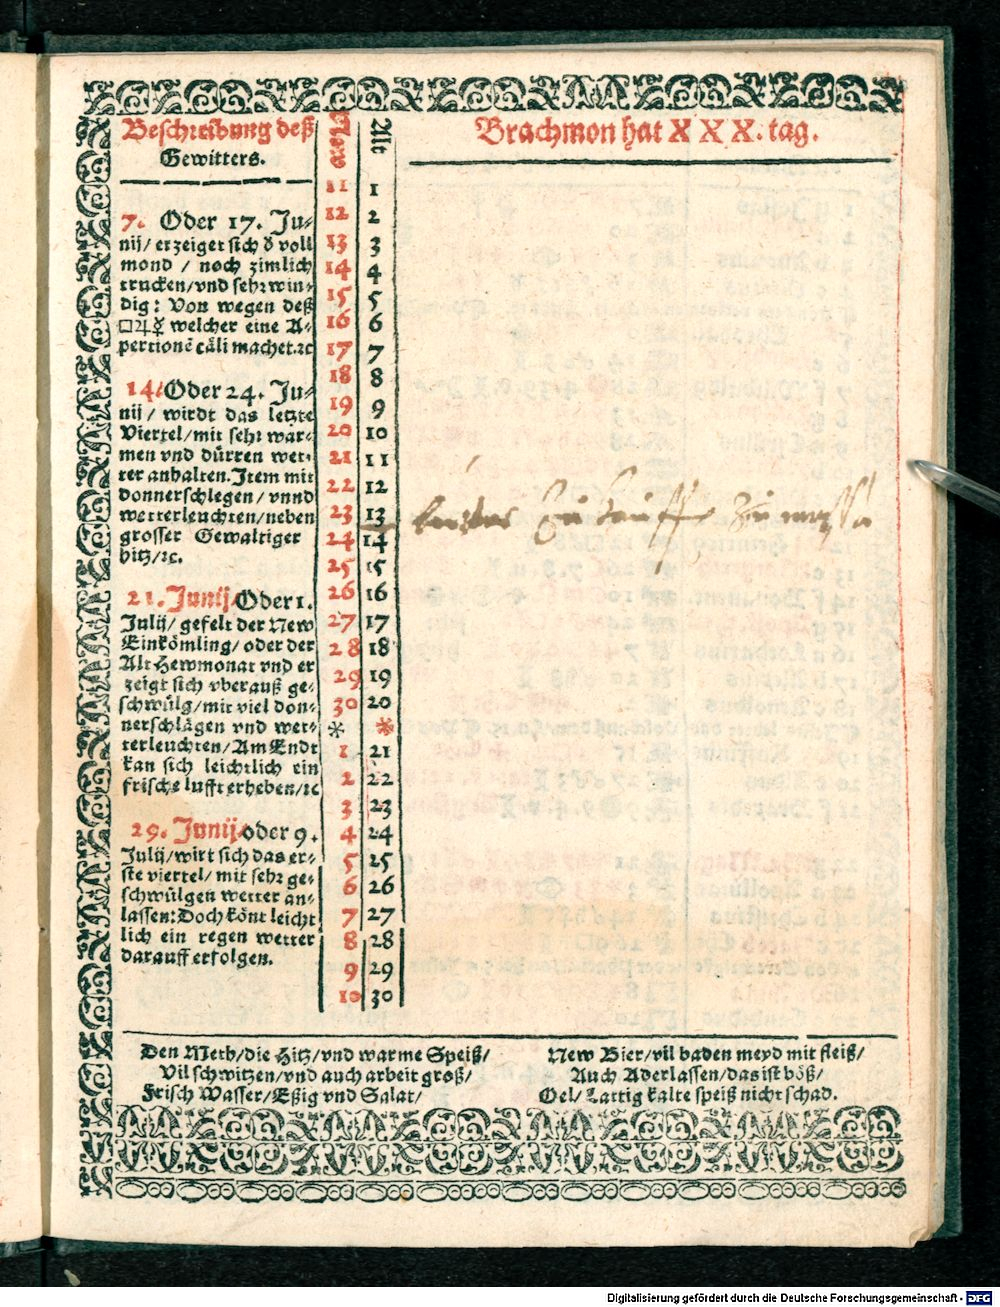 Beschreibung deß
Gewitters.
7. Oder 17. Ju-
nij/ erzeiget sich d voll
mond / noch zimlich
trucken/vnd sehr win-
dig: Von wegen deß
□♃☿ welcher eine A-
pertionē cæli machet.ꝛc
14/Oder 24. Ju-
nij/ wirdt das letzte
Viertel/mit sehr war-
men vnd dürren wet-
ter anhalten. Item mit
donnerschlegen/ vnnd
wetterleuchten/neben
grosser Gewaltiger
hitz/ꝛc.
21. Junij/Oder 1.
Julij/ gefelt der New
Einkömling/oder der
Alt Hewmonat vnd er
zeigt sich vberauß ge-
schwülg/mit viel don-
nerschlägen vnd wet-
terleuchten/Am Endt
kan sich leichtlich ein
frische lufft erheben/ꝛc
29. Junij/oder 9.
Julij/wirt sich das er-
ste viertel/ mit sehr ge-
schwülgen wetter an-
lassen: Doch könt leicht
lich ein regen wetter
darauff erfolgen.
Alt
Brachmon hat XXX. tag.
11 1
12 2
13 3
14 4
15 5
16 6
17 7
18 8
19 9
20 10
21 11
22 12
23 13
24 14
25 15
26 16
27 17
28 18
29 19
30 20
* *
1 21
2 22
3 23
4 24
5 25
6 26
7 27
8 28
9 29
10 30
Den Meth/die Hitz/vnd warme Speiß/
Vil schwitzen/vnd auch arbeit groß/
Frisch Wasser/Eßig vnd Salat/
New Bier/vil baden meyd mit fleiß/
Auch Aderlassen/das ist böß/
Oel/ Lattig kalte speiß nicht schad.
Digitalisierung gefördert durch die Deutsche Forschungsgemeinschaft - DFG